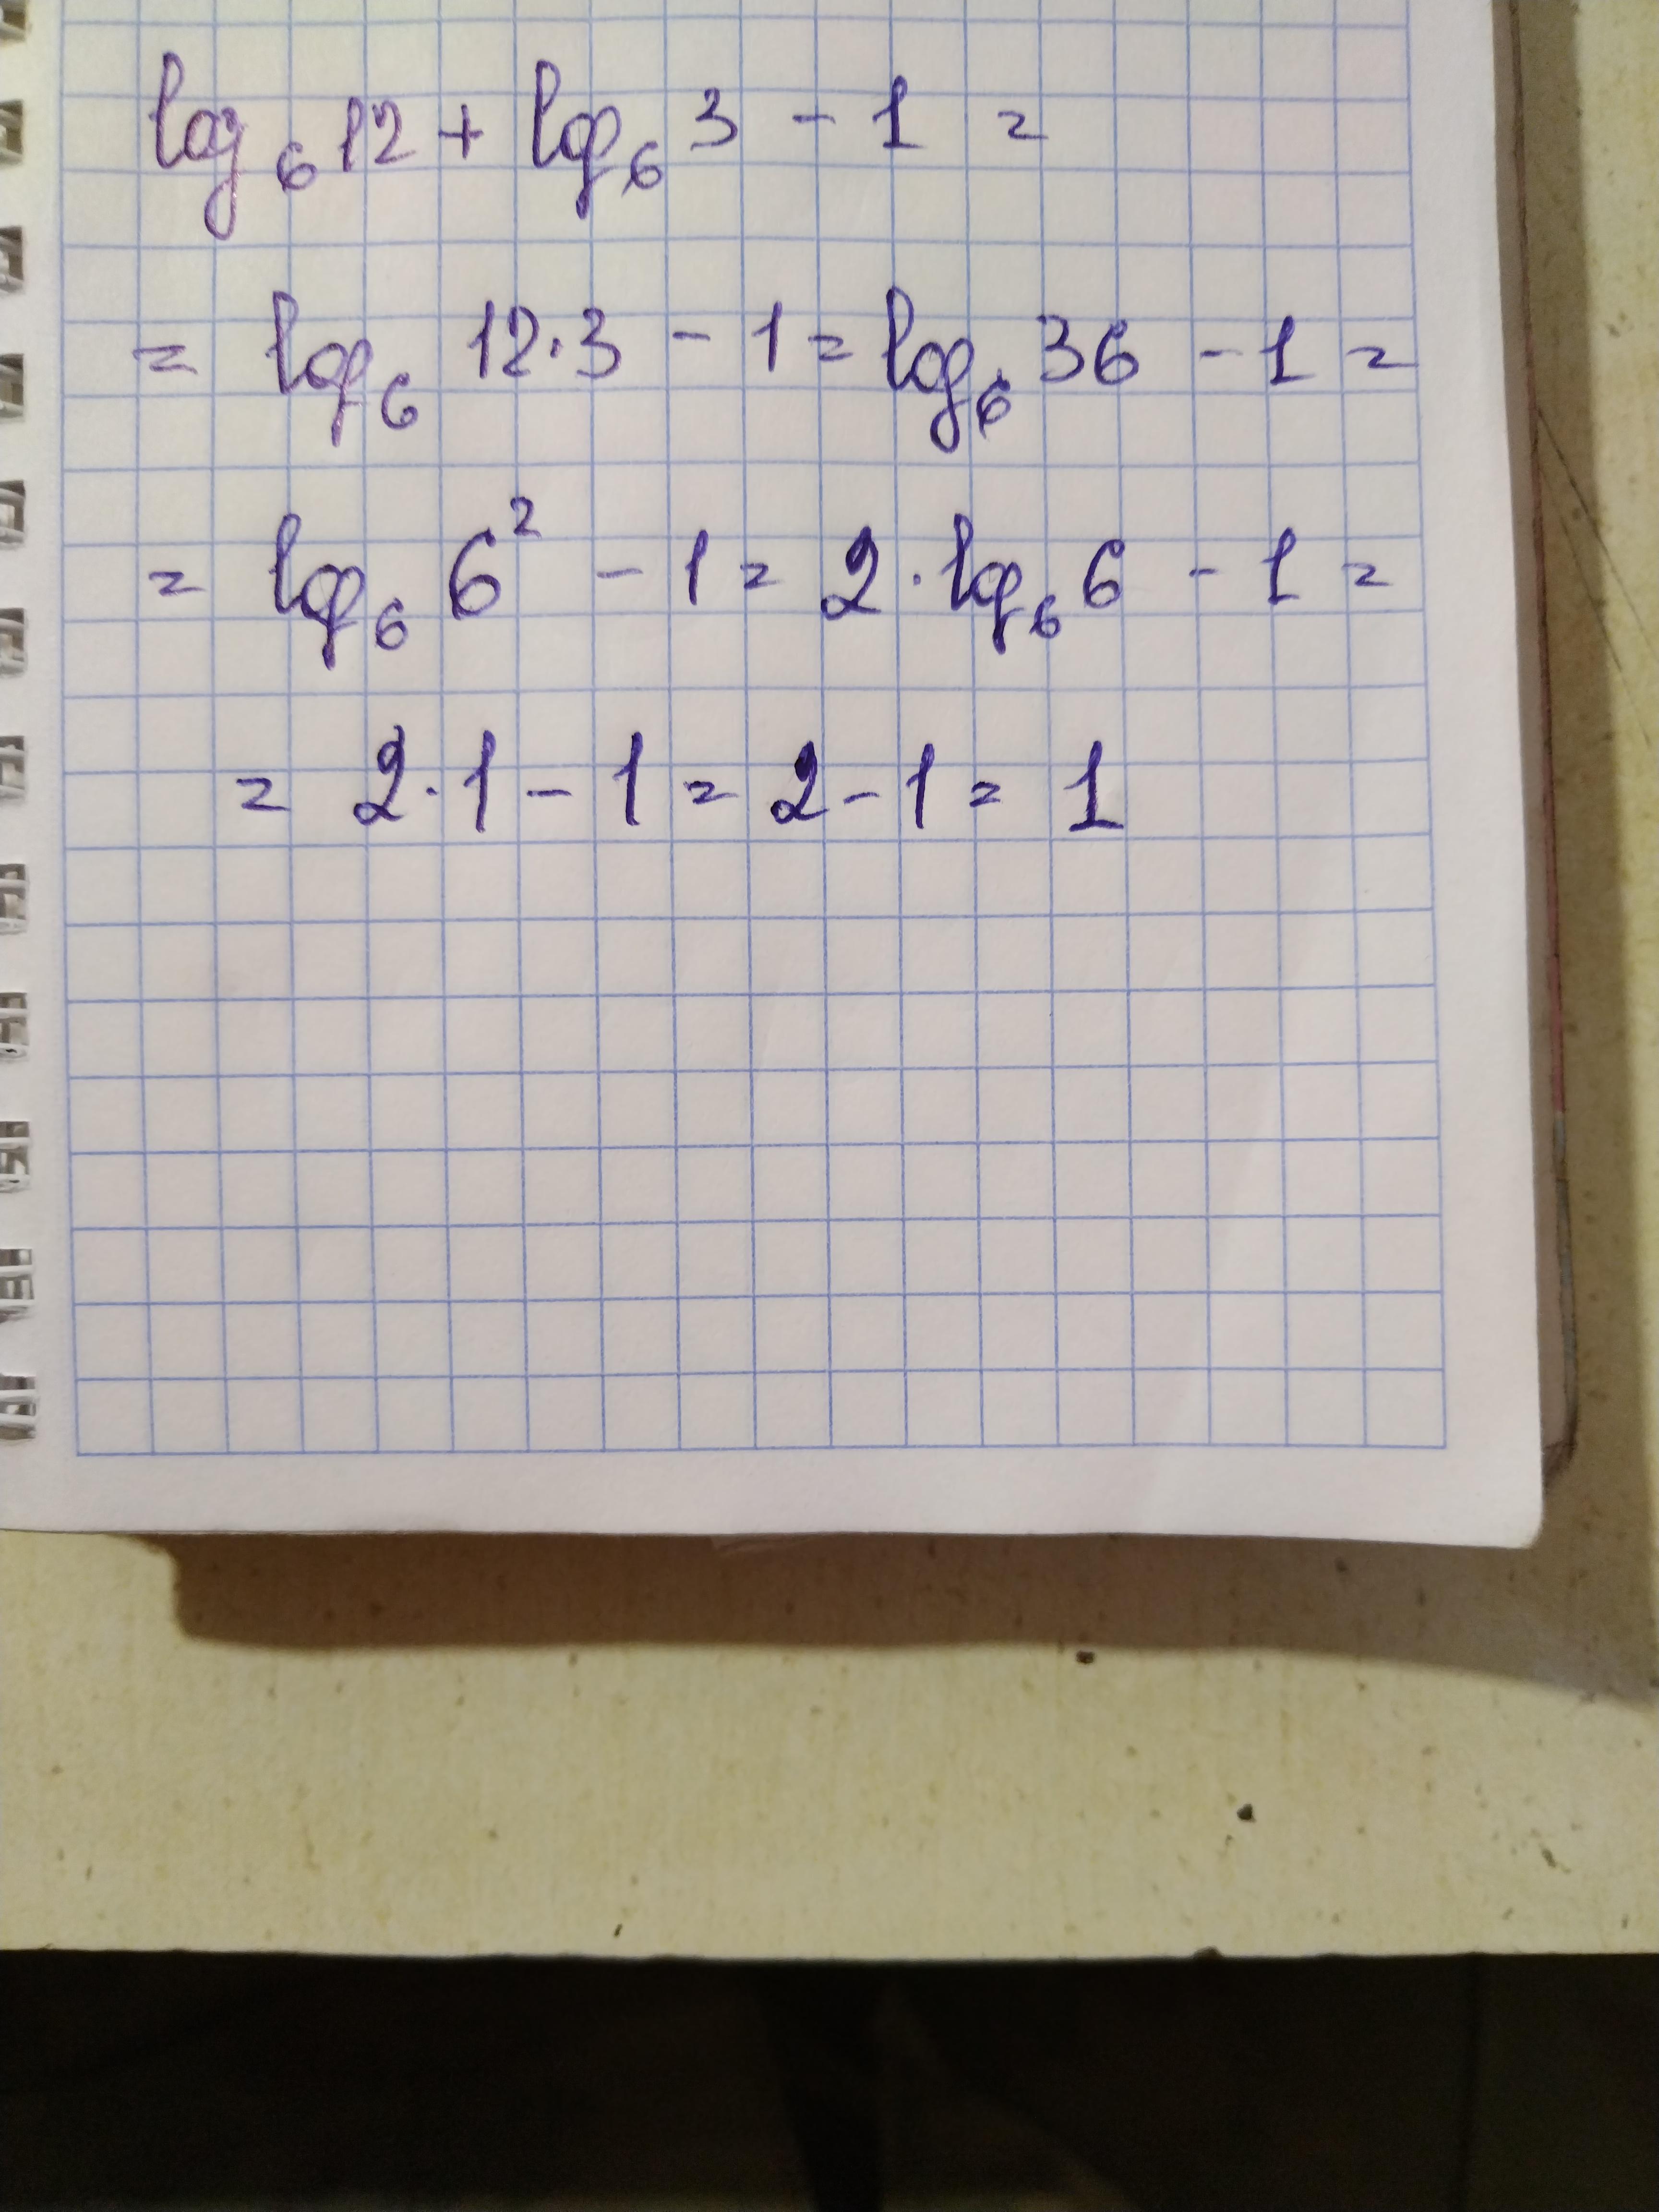 log₆ 12 + log₆ 3 - 1 =
= log₆ 12·3 - 1 = log₆ 36 - 1 =
= log₆ 6² - 1 = 2 · log₆ 6 - 1 =
= 2·1 - 1 = 2 - 1 = 1